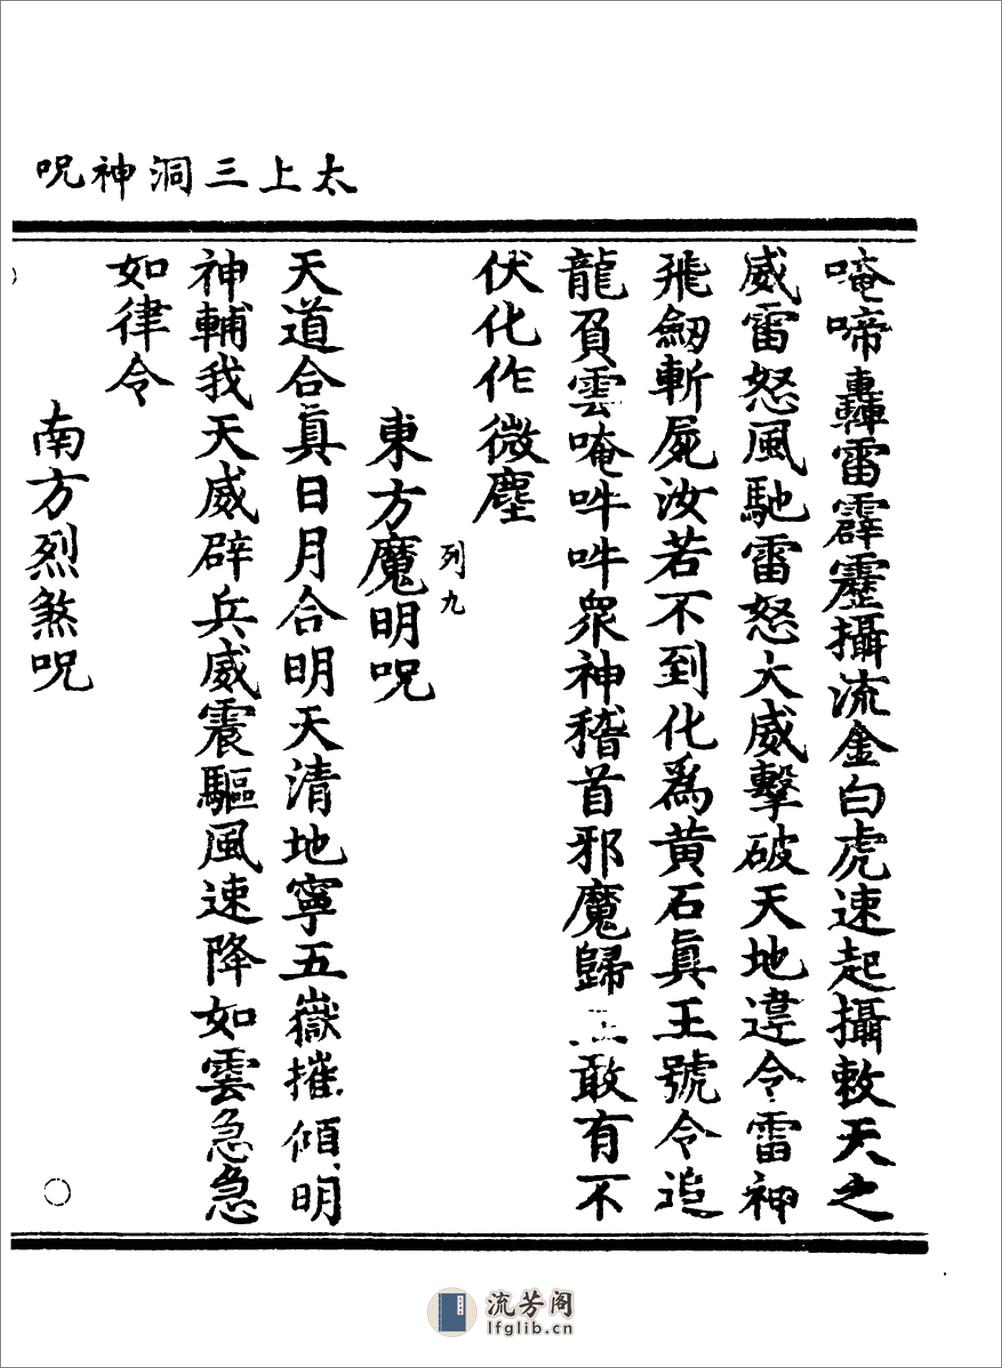 太上三洞神呪
唵啼轟雷霹靂攝流金白虎速起攝敕天之
威雷怒風馳雷怒大威擊破天地違令雷神
飛劒斬屍汝若不到化爲黄石真王號令追
龍負雲唵吽吽衆神稽首邪魔歸正敢有不
伏化作微塵
列九
東方魔明呪
天道合真日月合明天清地寧五嶽摧傾明
神輔我天威辟兵威震驅風速降如雲急急
如律令
南方烈煞呪
流芳阁
lfglib.cn